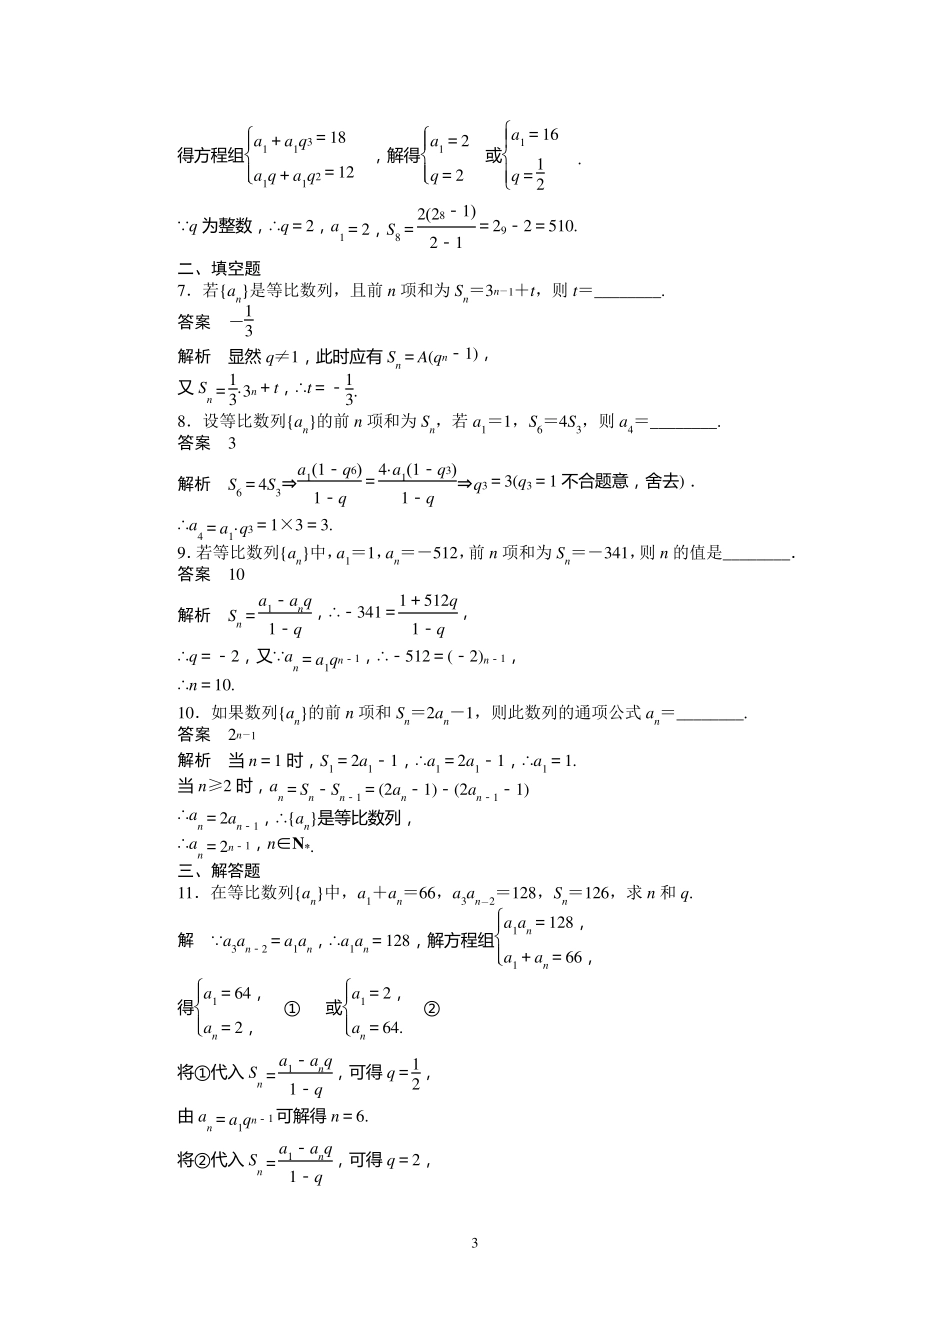 得方程组{a₁＋a₁q³＝18 a₁q＋a₁q²＝12，解得{a₁＝2 q＝2 或{a₁＝16 q＝1/2 .
∵q 为整数，∴q＝2，a₁＝2，S₈＝2(2⁸－1)/2－1＝2⁹－2＝510.
二、填空题
7．若{aₙ}是等比数列，且前 n 项和为 Sₙ＝3ⁿ⁻¹＋t，则 t＝________.
答案　－1/3
解析　显然 q≠1，此时应有 Sₙ＝A(qⁿ－1)，
又 Sₙ＝1/3·3ⁿ＋t，∴t＝－1/3.
8．设等比数列{aₙ}的前 n 项和为 Sₙ，若 a₁＝1，S₆＝4S₃，则 a₄＝________.
答案　3
解析　S₆＝4S₃⇒a₁(1－q⁶)/1－q＝4·a₁(1－q³)/1－q⇒q³＝3(q³＝1 不合题意，舍去)．
∴a₄＝a₁·q³＝1×3＝3.
9．若等比数列{aₙ}中，a₁＝1，aₙ＝－512，前 n 项和为 Sₙ＝－341，则 n 的值是________．
答案　10
解析　Sₙ＝a₁－aₙq/1－q，∴－341＝1＋512q/1－q，
∴q＝－2，又∵aₙ＝a₁qⁿ⁻¹，∴－512＝(－2)ⁿ⁻¹，
∴n＝10.
10．如果数列{aₙ}的前 n 项和 Sₙ＝2aₙ－1，则此数列的通项公式 aₙ＝________.
答案　2ⁿ⁻¹
解析　当 n＝1 时，S₁＝2a₁－1，∴a₁＝2a₁－1，∴a₁＝1.
当 n≥2 时，aₙ＝Sₙ－Sₙ₋₁＝(2aₙ－1)－(2aₙ₋₁－1)
∴aₙ＝2aₙ₋₁，∴{aₙ}是等比数列，
∴aₙ＝2ⁿ⁻¹，n∈N*.
三、解答题
11．在等比数列{aₙ}中，a₁＋aₙ＝66，a₃aₙ₋₂＝128，Sₙ＝126，求 n 和 q.
解　∵a₃aₙ₋₂＝a₁aₙ，∴a₁aₙ＝128，解方程组{a₁aₙ＝128， a₁＋aₙ＝66，
得{a₁＝64， aₙ＝2， ①　或{a₁＝2， aₙ＝64. ②
将①代入 Sₙ＝a₁－aₙq/1－q，可得 q＝1/2，
由 aₙ＝a₁qⁿ⁻¹可解得 n＝6.
将②代入 Sₙ＝a₁－aₙq/1－q，可得 q＝2，
3